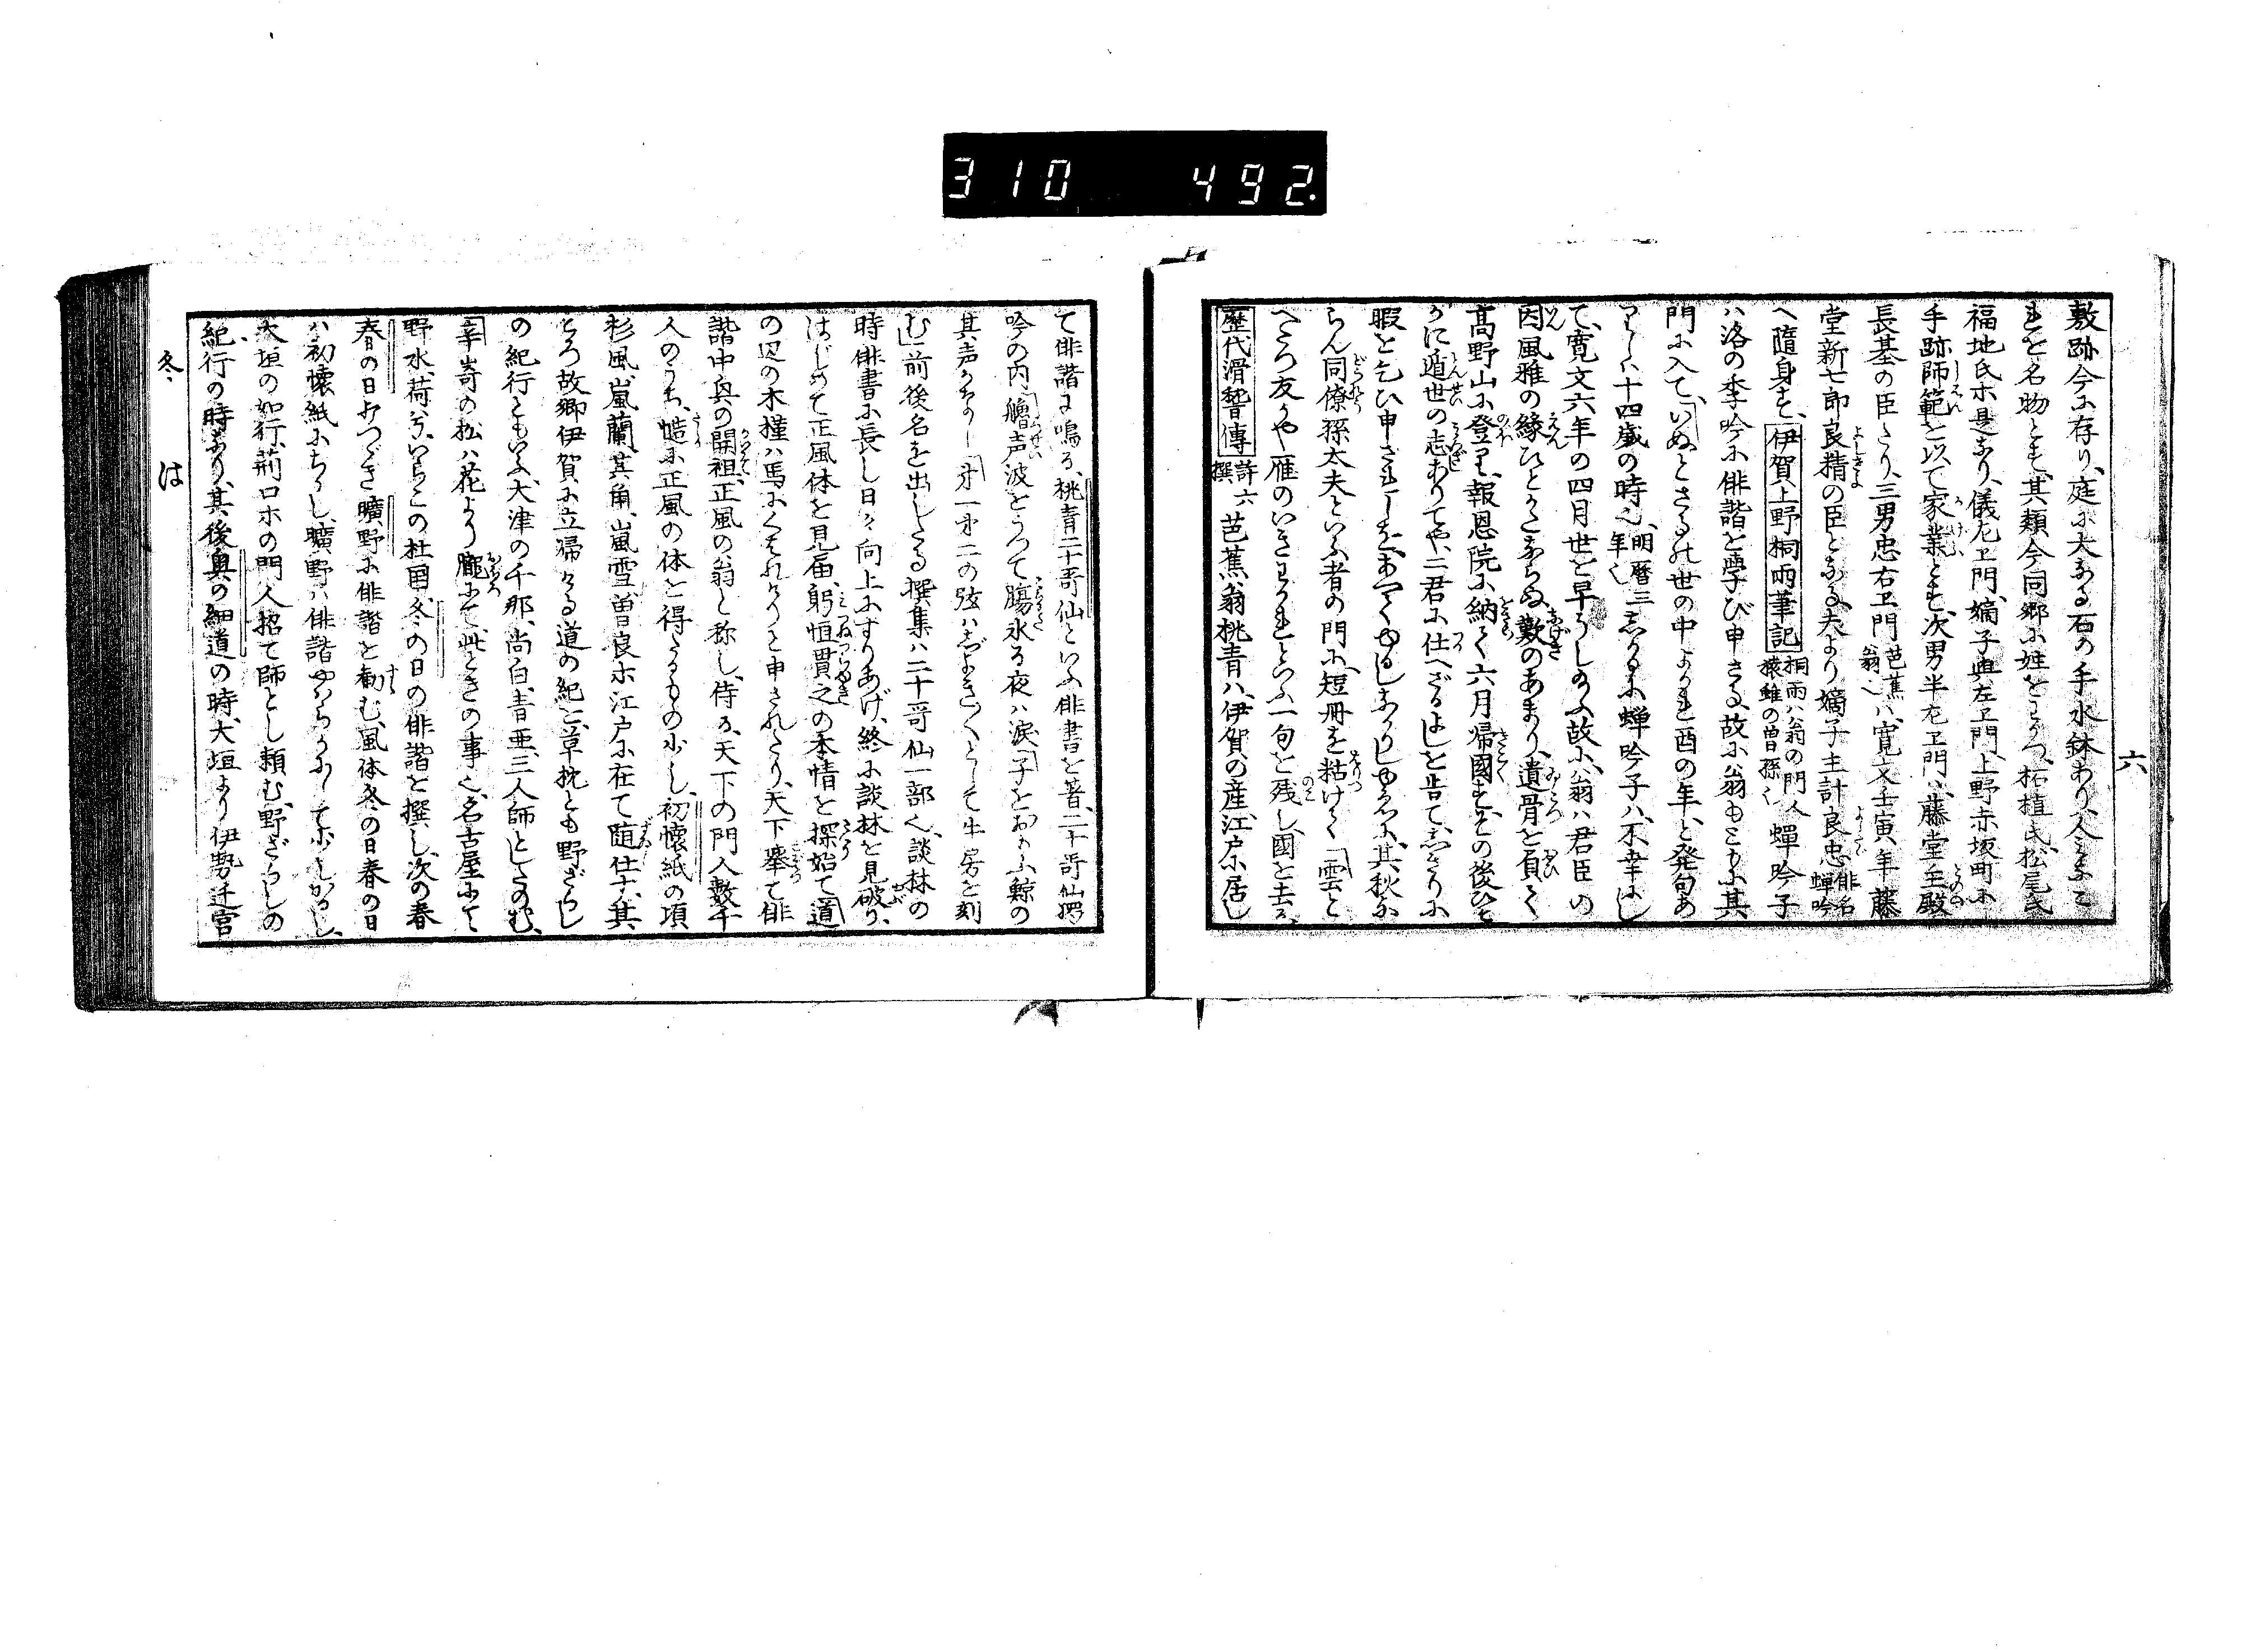 310 492.
六
敷跡今に存り、庭に大なる石の手水鉢あり、人みなこ
れを名物とす、其類今同郷に姓をわかつ、柘植氏、松尾氏
福地氏ホ是なり、儀左ヱ門、嫡子典左ヱ門、上野赤坂町に
手跡師範を以て家業とす、次男半左ヱ門ハ、藤堂主殿
長基の臣たり、三男忠右ヱ門芭蕉翁也ハ、寛文壬寅年藤
堂新七郎良精の臣となる、夫より嫡子主計良忠俳名蝉吟
へ隨身す、伊賀上野桐雨筆記桐雨ハ翁の門人猿雖の曽孫也 蝉吟子
ハ洛の季吟に俳諧を學び申さる、故に翁もともに其
門に入て、「いぬとさるの世の中よかれ酉の年、と発句あ
りしハ十四歳の時也、明暦三年也 しかるに蝉吟子ハ、不幸にし
て、寛文六年の四月世を早うしのふ、故に、翁ハ君臣の
因風雅の縁ひとかたならぬ歎のあまり、遺骨を負て
高野山に登り、報恩院に納て六月帰國す、その後ひそ
かに遁世の志ありてや、二君に仕へざるよしを告て、しきりに
暇を乞ひ申されしを、あへてゆるしなかりしゆゑに、其秋に
らん同僚孫太夫といふ者の門に、短冊を粘けて「雲と
へたつ友かや雁のいきわかれといふ一句を残し、國を去る、
歴代滑稽傳許六撰 芭蕉翁桃青ハ、伊賀の産、江戸に居し
て俳諧に鳴る、桃青二十哥仙といふ俳書を著、二十哥仙櫻
吟の内、「艪声波をうつて膓氷る夜ハ涙「子をおもふ鯨の
其声かなし「才一才二の弦ハきよきつくとして牛房を刻
む「前後名を出したる撰集ハ二十哥仙一部也、談林の
時俳書に長し日々向上にすりあげ、終に談林を見破り、
はじめて正風体を見届、躬恒貫之の本情を探始て「道
の辺の木槿ハ馬にくはれけりと申されたり、天下挙て俳
諧中興の開祖、正風の翁と称し、侍る、天下の門人數千
人のうち、慥に正風の体を得たるもの少し、初懐紙の項
杉風、嵐蘭、其角、嵐雪、曽良ホ江戸に在て随仕す、其
ころ故郷伊賀に立帰ける道の紀を、草枕とも野ざらし
の紀行ともいふ、大津の千那、尚白、青亜、三人師としたのむ、
「辛崎の松ハ花より朧にて、此ときの事也、名古屋にて
野水、荷兮、いらこの杜国、冬の日の俳諧を撰し、次の春
春の日おつづき曠野に俳諧を勧む、風体冬の日春の日
ハ初懐紙にちかし、曠野ハ俳諧やはらかにして少しかるし、
大垣の如行、荊口ホの門人招て師とし頼む、野ざらしの
紀行の時なり、其後奥の細道の時、大垣より伊勢迁宮
冬、 は